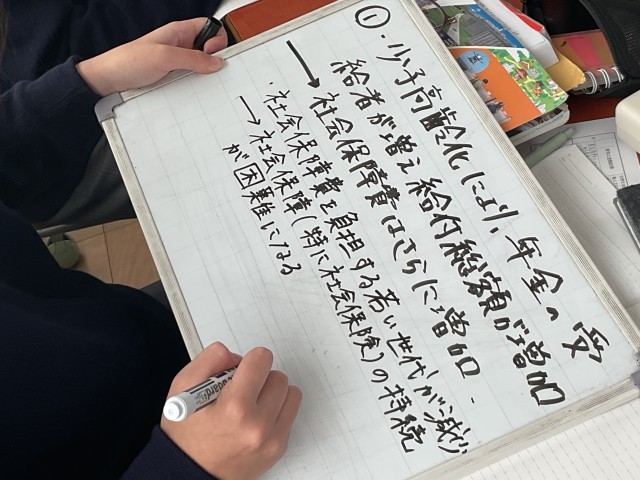 ①・少子高齢化により、年金の受
給者が増え給付総額が増加
→社会保障費はさらに増加.
・社会保障費を負担する若い世代が減少
→社会保障(特に社会保険)の持続
が困難になる